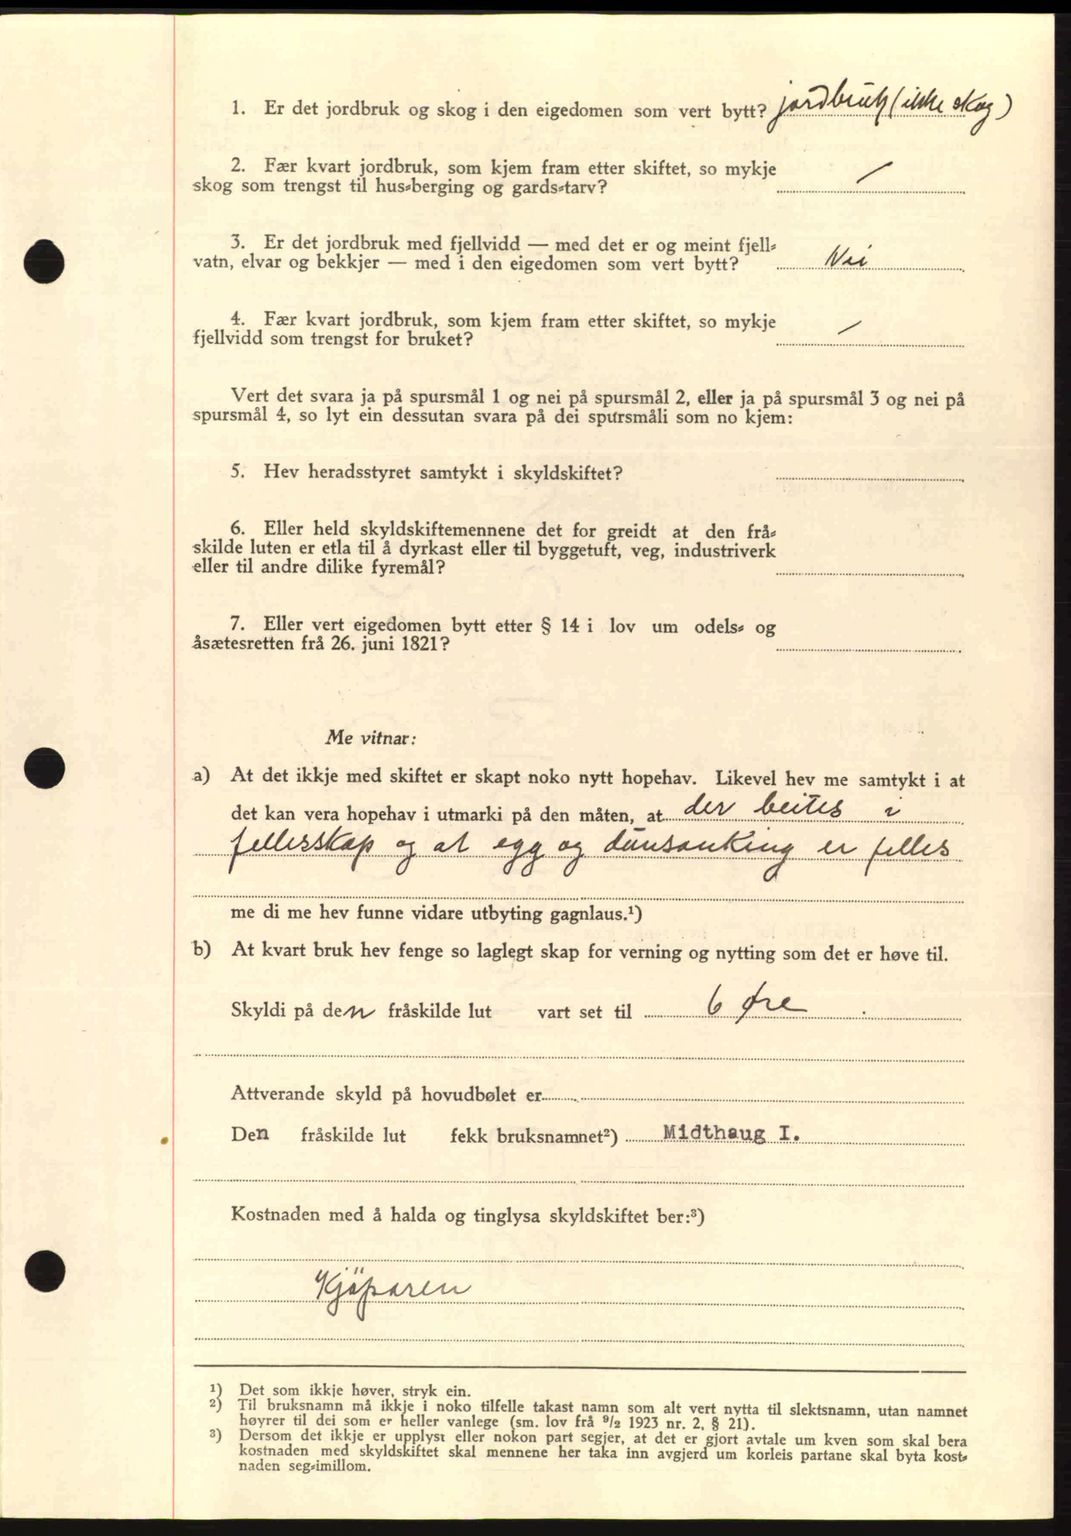 1. Er det jordbruk og skog i den eigedomen som vert bytt? jordbruk (ikke skog)
2. Fær kvart jordbruk, som kjem fram etter skiftet, so mykje
skog som trengst til hus-berging og gards-tarv? /
3. Er det jordbruk med fjellvidd — med det er og meint fjell-
vatn, elvar og bekkjer — med i den eigedomen som vert bytt? Nei
4. Fær kvart jordbruk, som kjem fram etter skiftet, so mykje
fjellvidd som trengst for bruket? /
Vert det svara ja på spursmål 1 og nei på spursmål 2, eller ja på spursmål 3 og nei på
spursmål 4, so lyt ein dessutan svara på dei spursmåli som no kjem:
5. Hev heradsstyret samtykt i skyldskiftet?
6. Eller held skyldskiftemennene det for greidt at den frå-
skilde luten er etla til å dyrkast eller til byggetuft, veg, industriverk
eller til andre dilike fyremål?
7. Eller vert eigedomen bytt etter § 14 i lov um odels- og
åsætesretten frå 26. juni 1821?
Me vitnar:
a) At det ikkje med skiftet er skapt noko nytt hopehav. Likevel hev me samtykt i at
det kan vera hopehav i utmarki på den måten, at der beites i
fellesskap og at egg og dunsanking er felles
me di me hev funne vidare utbyting gagnlaus.¹)
b) At kvart bruk hev fenge so laglegt skap for verning og nytting som det er høve til.
Skyldi på den fråskilde lut vart set til 6 øre
Attverande skyld på hovudbølet er
Den fråskilde lut fekk bruksnamnet²) Midthaug I.
Kostnaden med å halda og tinglysa skyldskiftet ber:³)
Kjöparen
¹) Det som ikkje høver, stryk ein.
²) Til bruksnamn må ikkje i noko tilfelle takast namn som alt vert nytta til slektsnamn, utan namnet
høyrer til dei som er heller vanlege (sm. lov frå 9/2 1923 nr. 2, § 21).
³) Dersom det ikkje er upplyst eller nokon part segjer, at det er gjort avtale um kven som skal bera
kostnaden med skyldskiftet skal mennene her taka inn avgjerd um korleis partane skal byta kost-
naden seg-imillom.